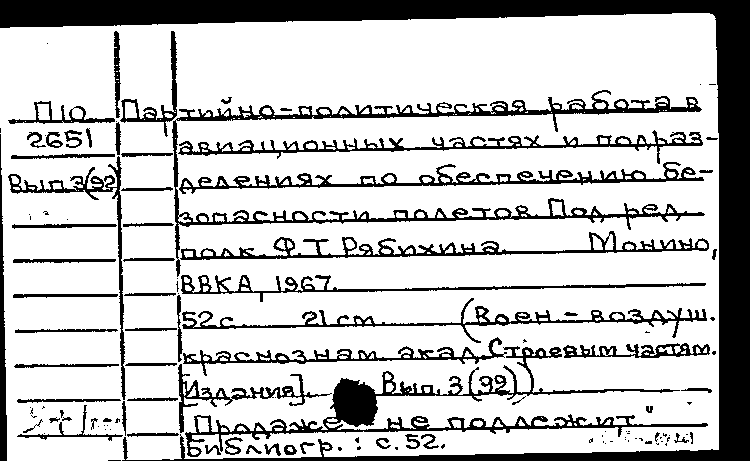 П10 Партийно-политическая работа в
2651 авиационных частях и подраз-
Вып.3(92) делениях по обеспечению бе-
зопасности полетов. Под ред.
полк. Ф.Т. Рябихина. Монино,
ВВКА, 1967.
52 с. 21 см. (Воен.-воздуш.
краснознам. акад. Строевым частям.
[Издания]. Вып. 3(92)).
"Продаже не подлежит"
Библиогр.: с. 52.